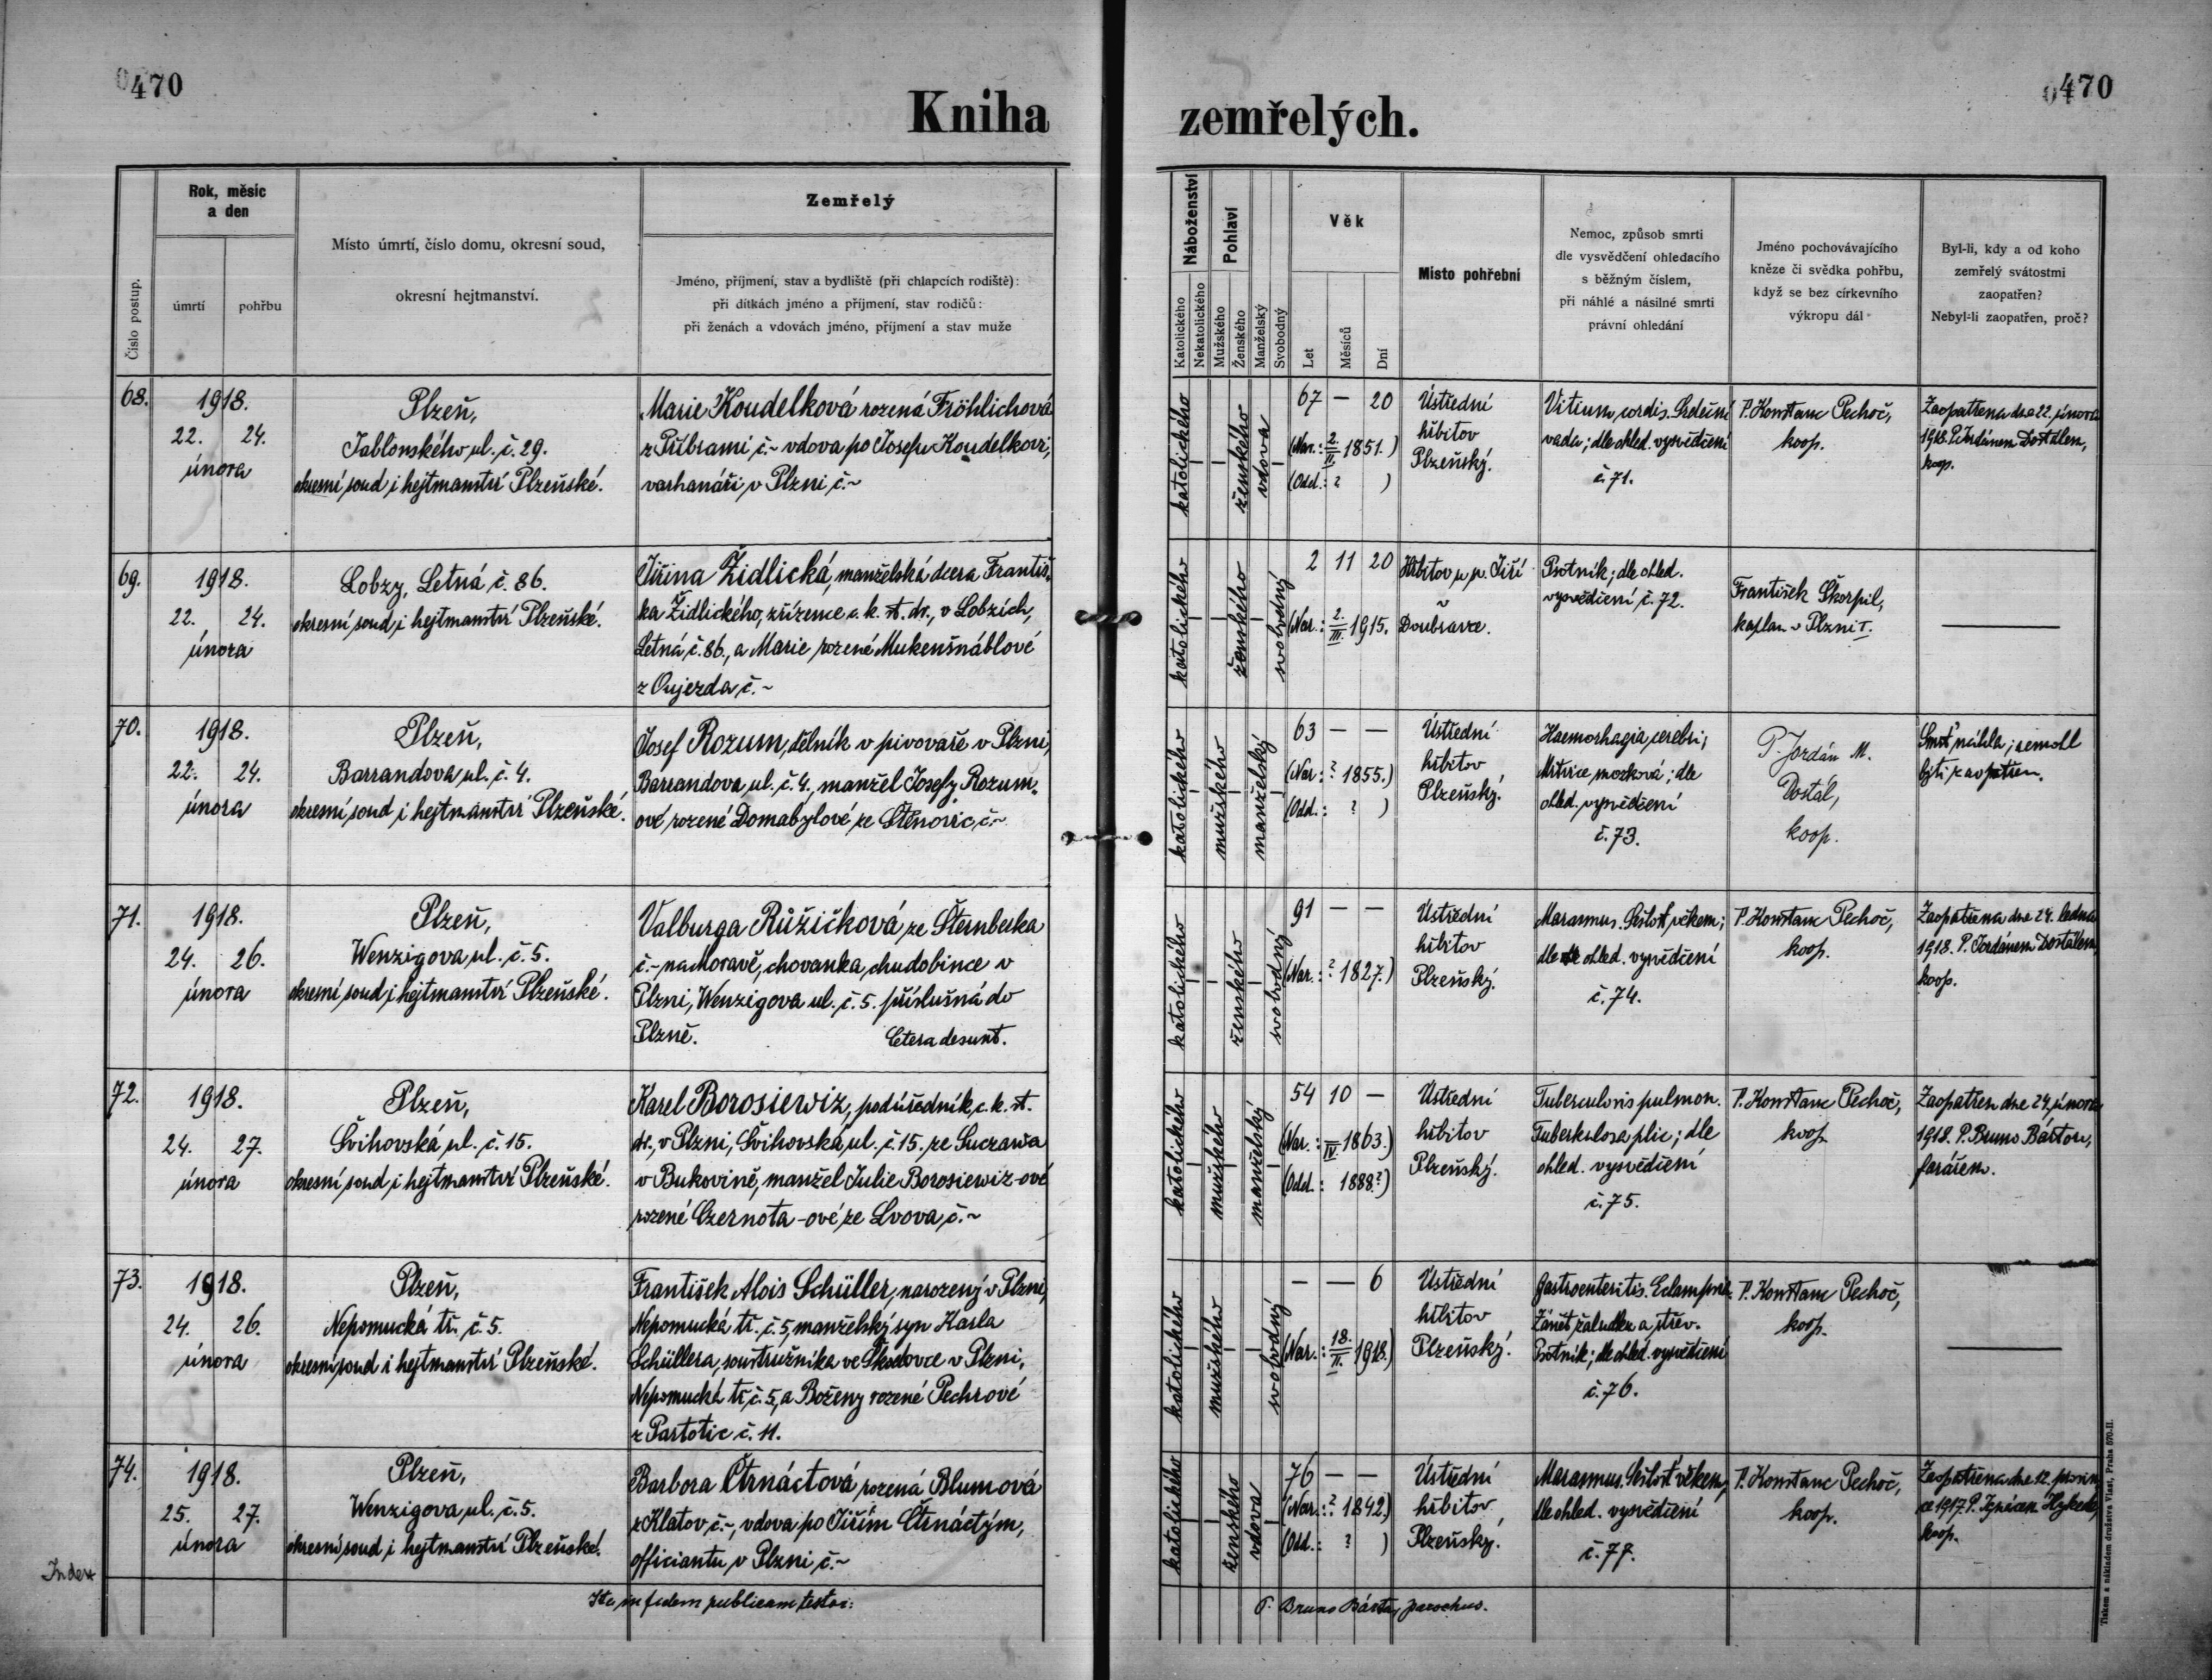 470
470
Kniha zemřelých.
Číslo postup.
Rok, měsíc
a den
úmrtí
pohřbu
Místo úmrtí, číslo domu, okresní soud,
okresní hejtmanství.
Zemřelý
Jméno, příjmení, stav a bydliště (při chlapcích rodiště):
při dítkách jméno a příjmení, stav rodičů:
při ženách a vdovách jméno, příjmení a stav muže
Náboženství
Katolického
Nekatolického
Pohlaví
Mužského
Ženského
Manželský
Svobodný
Věk
Let
Měsíců
Dní
Místo pohřební
Nemoc, způsob smrti
dle vysvědčení ohledacího
s běžným číslem,
při náhlé a násilné smrti
právní ohledání
Jméno pochovávajícího
kněze či svědka pohřbu,
když se bez církevního
výkropu dál
Byl-li, kdy a od koho
zemřelý svátostmi
zaopatřen?
Nebyl-li zaopatřen, proč?
68.
1918.
22. 24.
února
Plzeň,
Jablonského ul. č. 29.
okresní soud i hejtmanství Plzeňské.
Marie Koudelková rozená Fröhlichová
z Příbrami č. ~ vdova po Josefu Koudelkovi,
varhanáři v Plzni č. ~
katolického
ženského
vdova
67 — 20
(Nar.: 2./II. 1851.)
(Odd.: ? )
Ústřední
hřbitov
Plzeňský.
Vitium cordis. Srdeční
vada; dle ohled. vysvědčení
č. 71.
P. Konstanc Pechoč,
koop.
Zaopatřena dne 22. února
1918. P. Jordánem Dostálem,
koop.
69.
1918.
22. 24.
února
Lobzy, Letná č. 86.
okresní soud i hejtmanství Plzeňské.
Jiřina Židlická, manželská dcera Františ-
ka Židlického, zřízence c. k. st. dr., v Lobzích,
Letná č. 86., a Marie rozené Mukenšnáblové
z Oujezda č. ~
katolického
ženského
svobodný
2 11 20
(Nar.: 2./III. 1915.
Hřbitov u sv. Jiří
v
Doubravce.
Psotník; dle ohled.
vysvědčení č. 72.
František Škorpil,
kaplan v Plzni I.
—
70.
1918.
22. 24.
února
Plzeň,
Barrandova ul. č. 4.
okresní soud i hejtmanství Plzeňské.
Josef Rozum, dělník v pivovaře v Plzni,
Barrandova ul. č. 4., manžel Josefy Rozum-
ové rozené Domabylové ze Štěnovic č. ~
katolického
mužského
manželský
63 — —
(Nar.: ? 1855.)
(Odd.: ? )
Ústřední
hřbitov
Plzeňský.
Haemorhagia cerebri;
Mrtvice mozková; dle
ohled. vysvědčení
č. 73.
P. Jordán M.
Dostál,
koop.
Smrt náhlá; nemohl
býti zaopatřen.
71.
1918.
24. 26.
února
Plzeň,
Wenzigova ul. č. 5.
okresní soud i hejtmanství Plzeňské.
Valburga Růžičková ze Šternberka
č. ~ na Moravě, chovanka chudobince v
Plzni, Wenzigova ul. č. 5. příslušná do
Plzně. Cetera desunt.
katolického
ženského
svobodný
91 — —
(Nar.: ? 1827.)
Ústřední
hřbitov
Plzeňský.
Marasmus. Sešlost věkem;
dle ohled. vysvědčení
č. 74.
P. Konstanc Pechoč,
koop.
Zaopatřena dne 24. ledna
1918. P. Jordánem Dostálem,
koop.
72.
1918.
24. 27.
února
Plzeň,
Švihovská ul. č. 15.
okresní soud i hejtmanství Plzeňské.
Karel Borosiewiz, podúředník c. k. st.
dr., v Plzni, Švihovská ul. č. 15. ze Suczawa
v Bukovině, manžel Julie Borosiewiz-ové
rozené Czernota-ové ze Lvova č. ~
katolického
mužského
manželský
54 10 —
(Nar.: IV. 1863.)
(Odd.: 1888.?)
Ústřední
hřbitov
Plzeňský.
Tuberculosis pulmon.
Tuberkulosa plic; dle
ohled. vysvědčení
č. 75.
P. Konstanc Pechoč,
koop.
Zaopatřen dne 24. února
1918. P. Bruno Bárton,
farářem.
73.
1918.
24. 26.
února
Plzeň,
Nepomucká tř. č. 5.
okresní soud i hejtmanství Plzeňské.
František Alois Schüller, narozený v Plzni,
Nepomucká tř. č. 5, manželský syn Karla
Schüllera, soustružníka ve Škodovce v Plzni,
Nepomucká tř. č. 5, a Boženy rozené Pechrové
z Partotic č. 11.
katolického
mužského
svobodný
— — 6
(Nar.: 18./II. 1918.)
Ústřední
hřbitov
Plzeňský.
Gastroenteritis.
Zánět žaludku a střev.
Psotník; dle ohled. vysvědčení
č. 76.
P. Konstanc Pechoč,
koop.
—
74.
1918.
25. 27.
února
Plzeň,
Wenzigova ul. č. 5.
okresní soud i hejtmanství Plzeňské.
Barbora Čtrnáctová rozená Blumová
z Klatov č. ~, vdova po Jiřím Čtrnáctým,
officiantu v Plzni č. ~
katolického
ženského
vdova
76 — —
(Nar.: ? 1842.)
(Odd.: ? )
Ústřední
hřbitov
Plzeňský.
Marasmus. Sešlost věkem;
dle ohled. vysvědčení
č. 77.
P. Konstanc Pechoč,
koop.
Zaopatřena dne 12. prosin-
ce 1917. P.
koop.
Index
Ita in fidem publicam testor:
P. Bruno Bárton, parochus.
Tiskem a nákladem družstva Vlast, Praha 570-II.